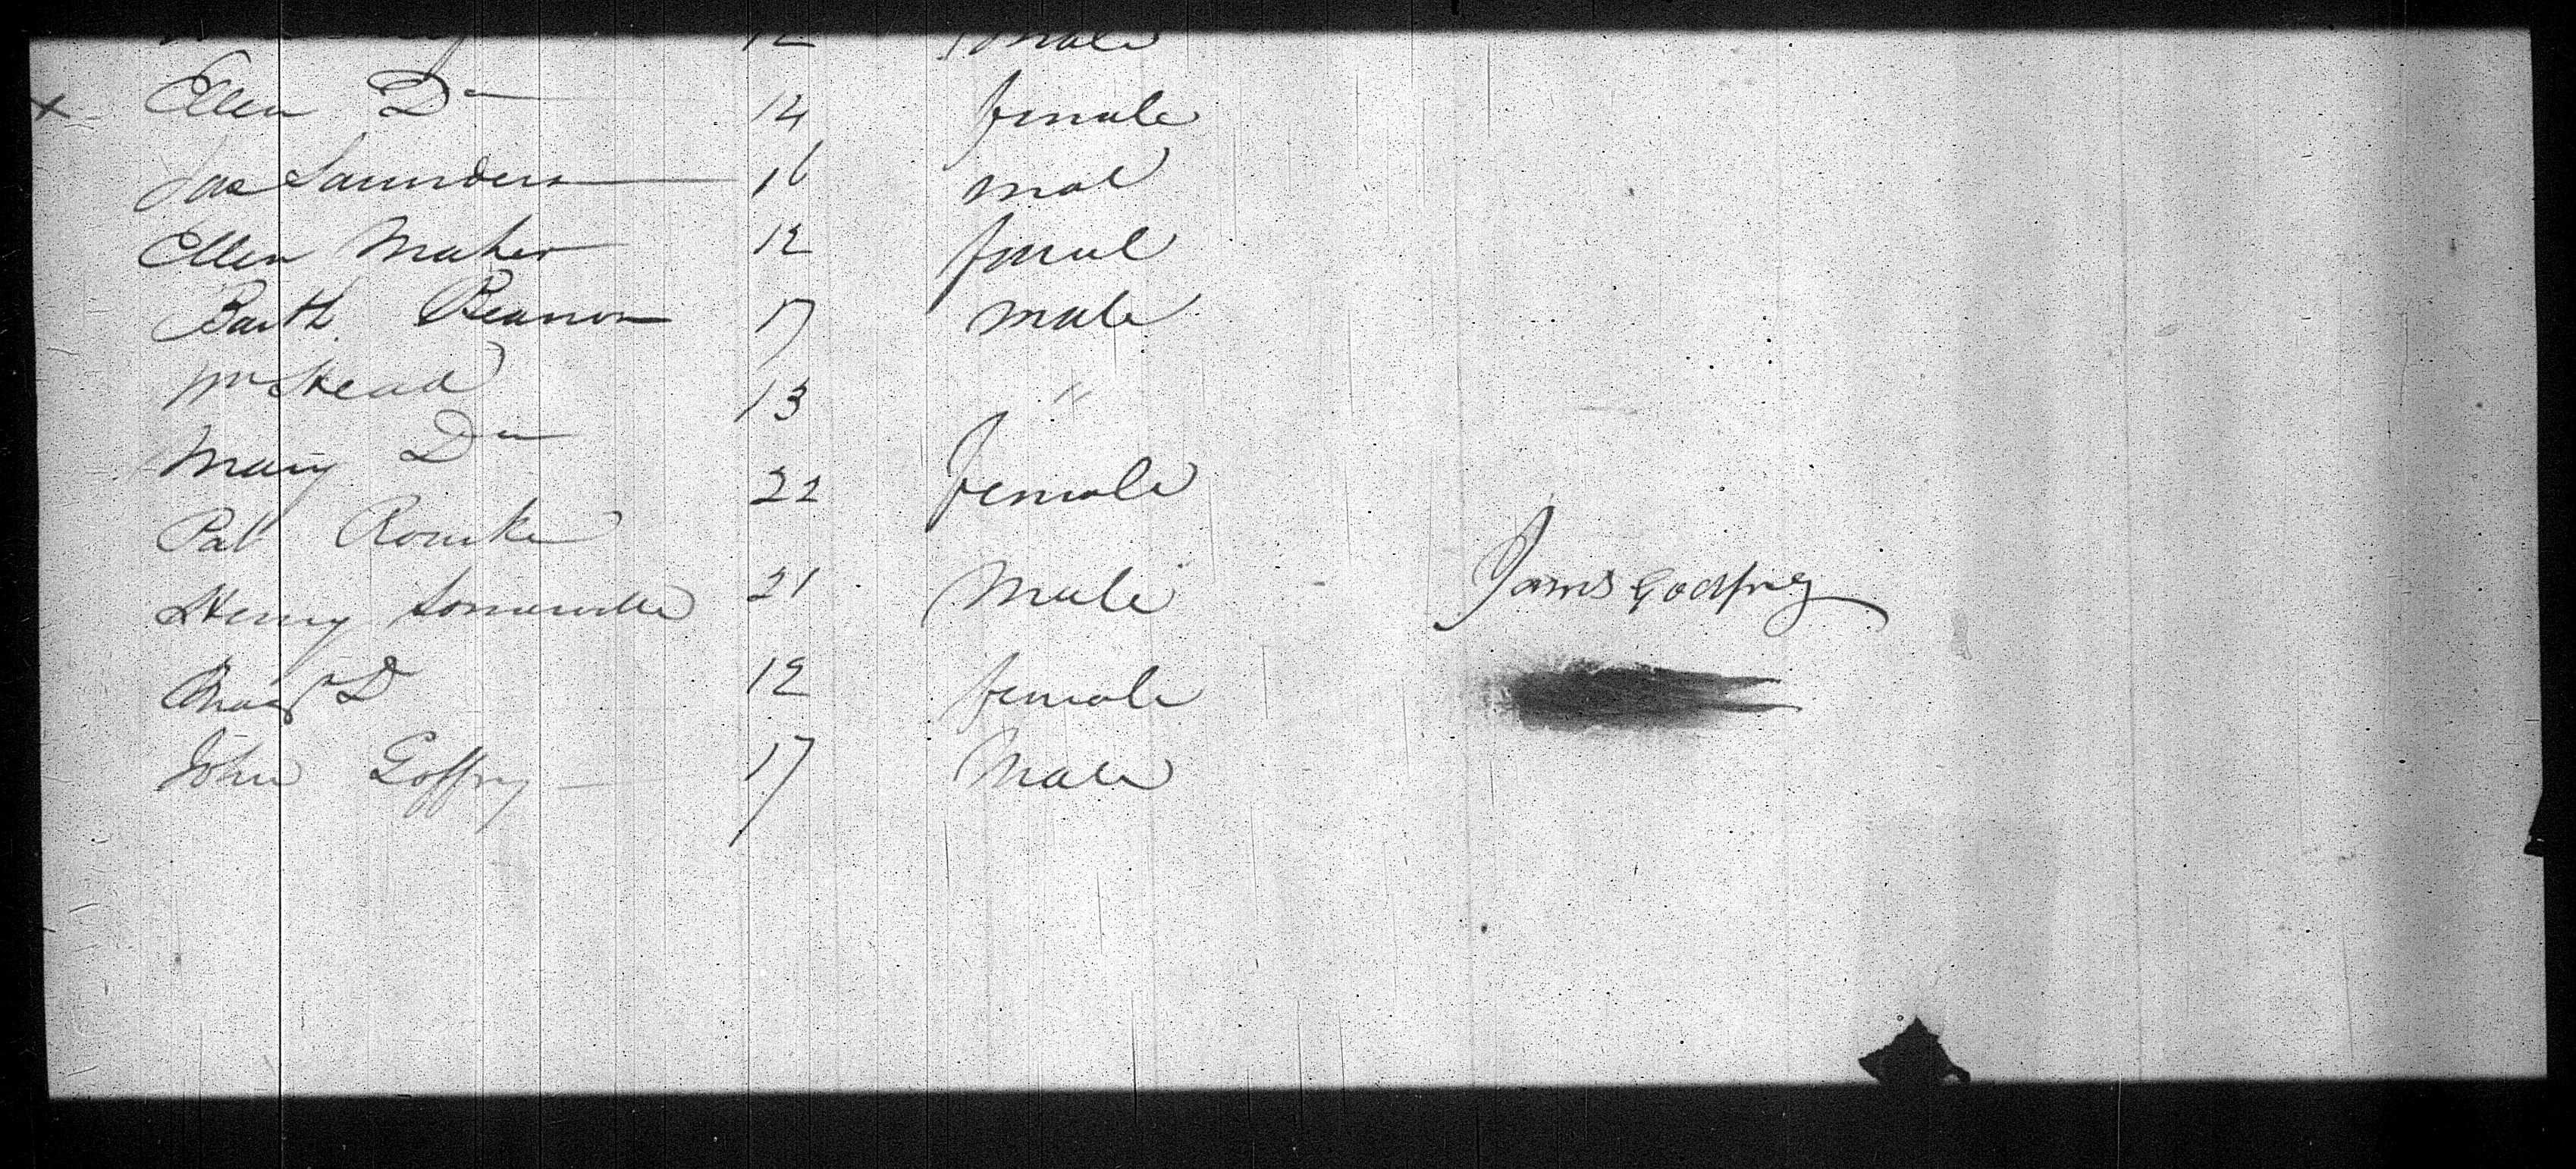 12 female
Ellen Do 14 female
Jas Saunders 16 mal
Ellen Maher 12 femal
Barth 17 male
Wm Head 13 "
Mary Do 22 female
Pat Rourke
Henry Somerville 21 Male
James Godfrey
Do 12 female
John Goffry 17 Male